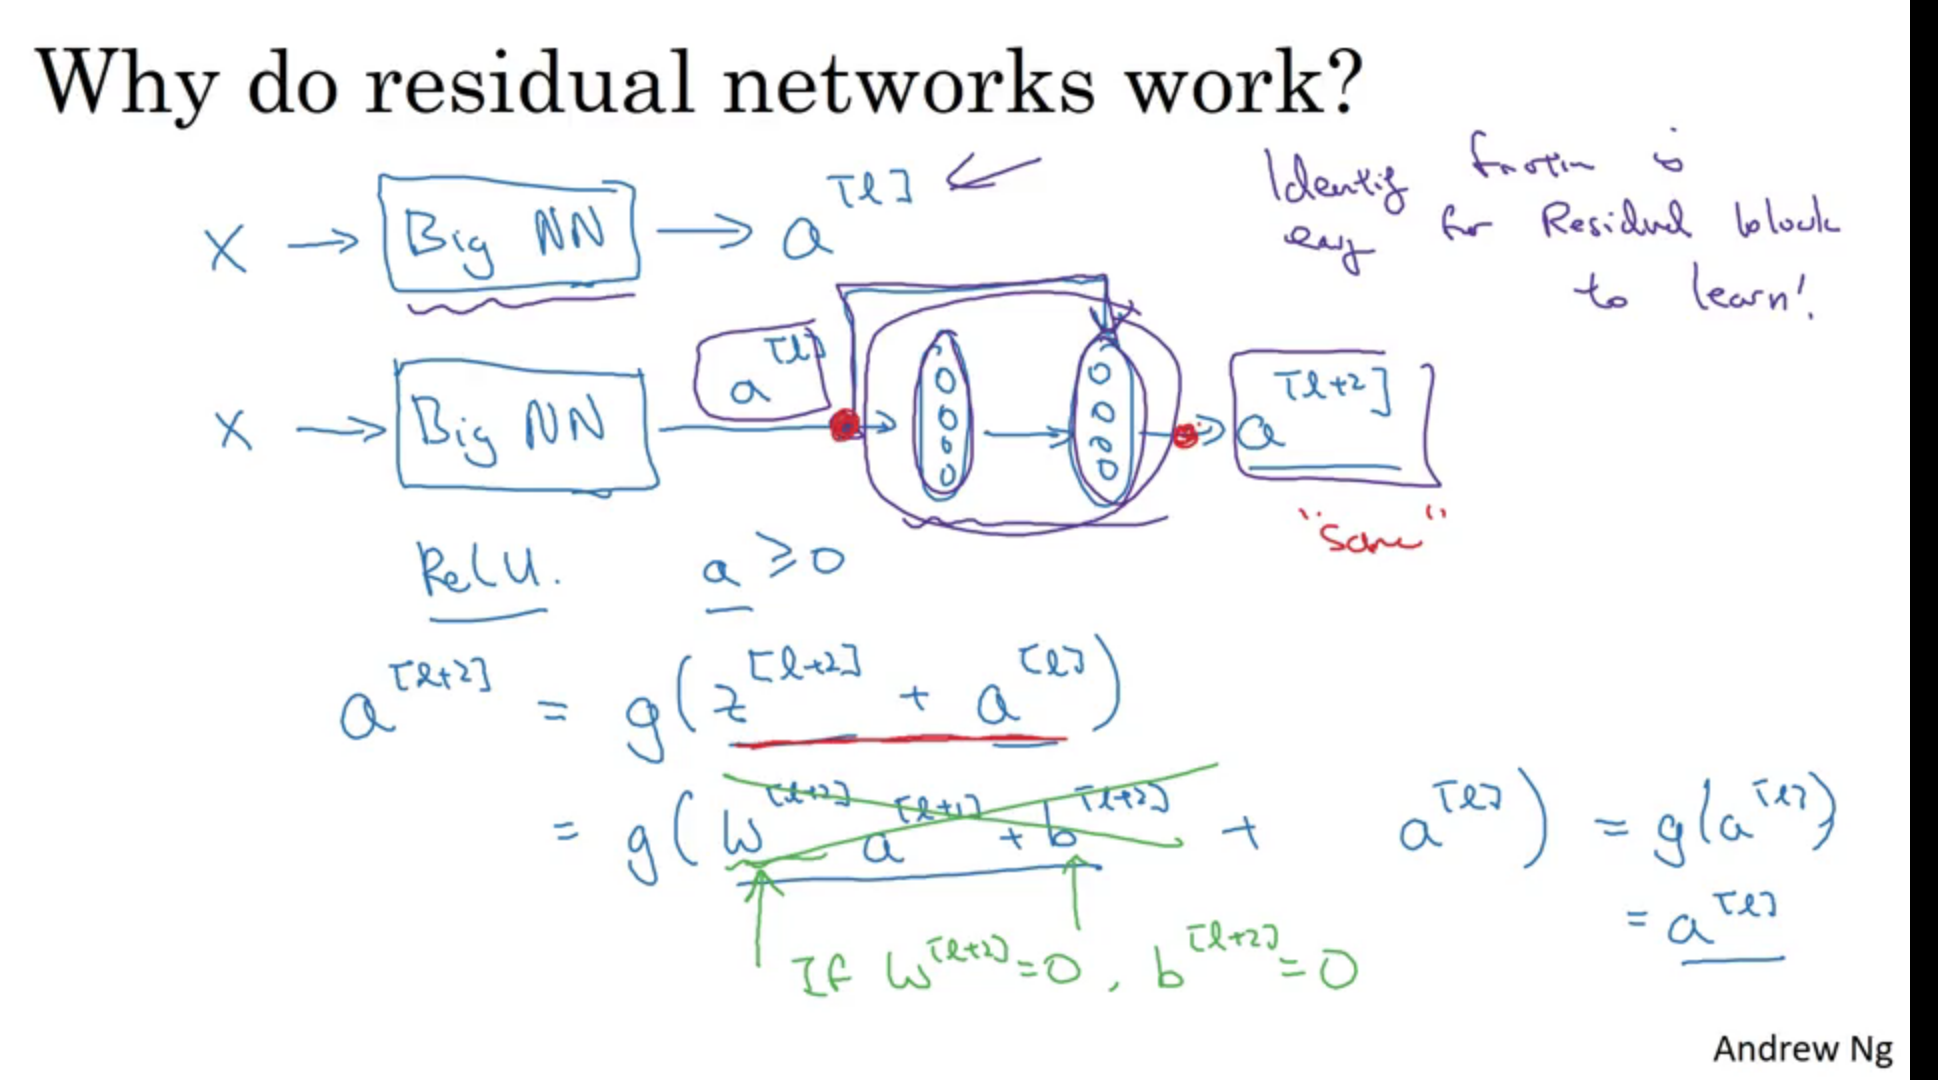 Why do residual networks work?
X → Big NN → a^[l]
Identity function is
easy for Residual block
to learn!
X → Big NN a^[l] → → a^[l+2]
"Same"
ReLU. a ≥ 0
a^[l+2] = g(z^[l+2] + a^[l])
= g(W^[l+2] a^[l+1] + b^[l+2] + a^[l]) = g(a^[l])
= a^[l]
If W^[l+2] = 0, b^[l+2] = 0
Andrew Ng